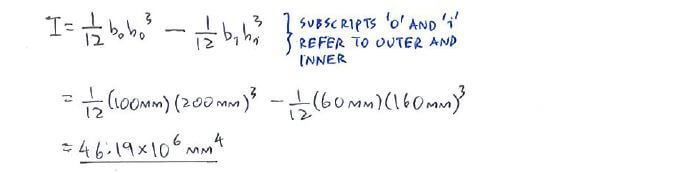 I = 1/12 b₀h₀³ − 1/12 bᵢhᵢ³ } SUBSCRIPTS 'o' AND 'i'
REFER TO OUTER AND
INNER
= 1/12 (100mm)(200mm)³ − 1/12 (60mm)(160mm)³
= 46.19×10⁶ mm⁴